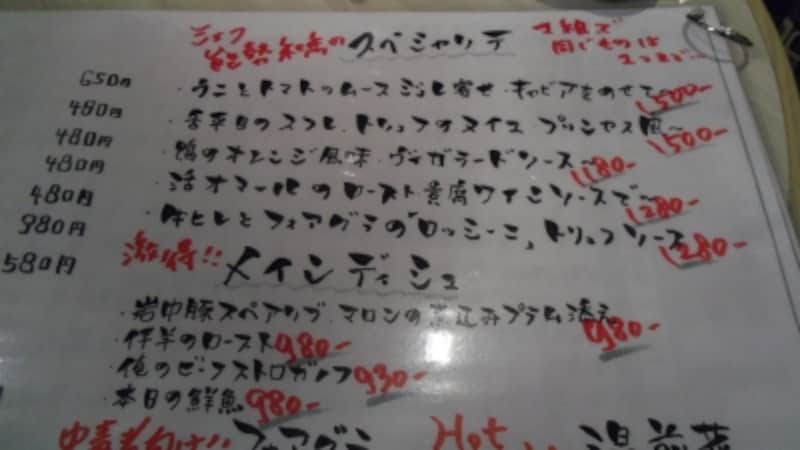 シェフ
能勢和秀の スペシャリテ
1組で
同じものは
650円 ・うにとトマトのムース ジュレ寄せ キャビアをのせて~ 1,500-
480円 ・舌平目のスフレ、トリュフのヌイユ プリンセス風~ 1,500-
480円 ・鴨のオレンジ風味 ヴィガラードソース~ 1,180-
480円 ・活オマールのロースト 貴腐ワインソースで~ 1,280-
480円 ・牛ヒレとフォアグラの「ロッシーニ」トリュフソース 1,280-
980円
580円
激得!! メインディシュ
・岩中豚スペアリブ、マロンの煮込みプラム添え 980-
・仔羊のロースト 980-
・俺のビーフストロガノフ 930-
・本日の鮮魚 980-
フォアグラ
Hot
温前菜